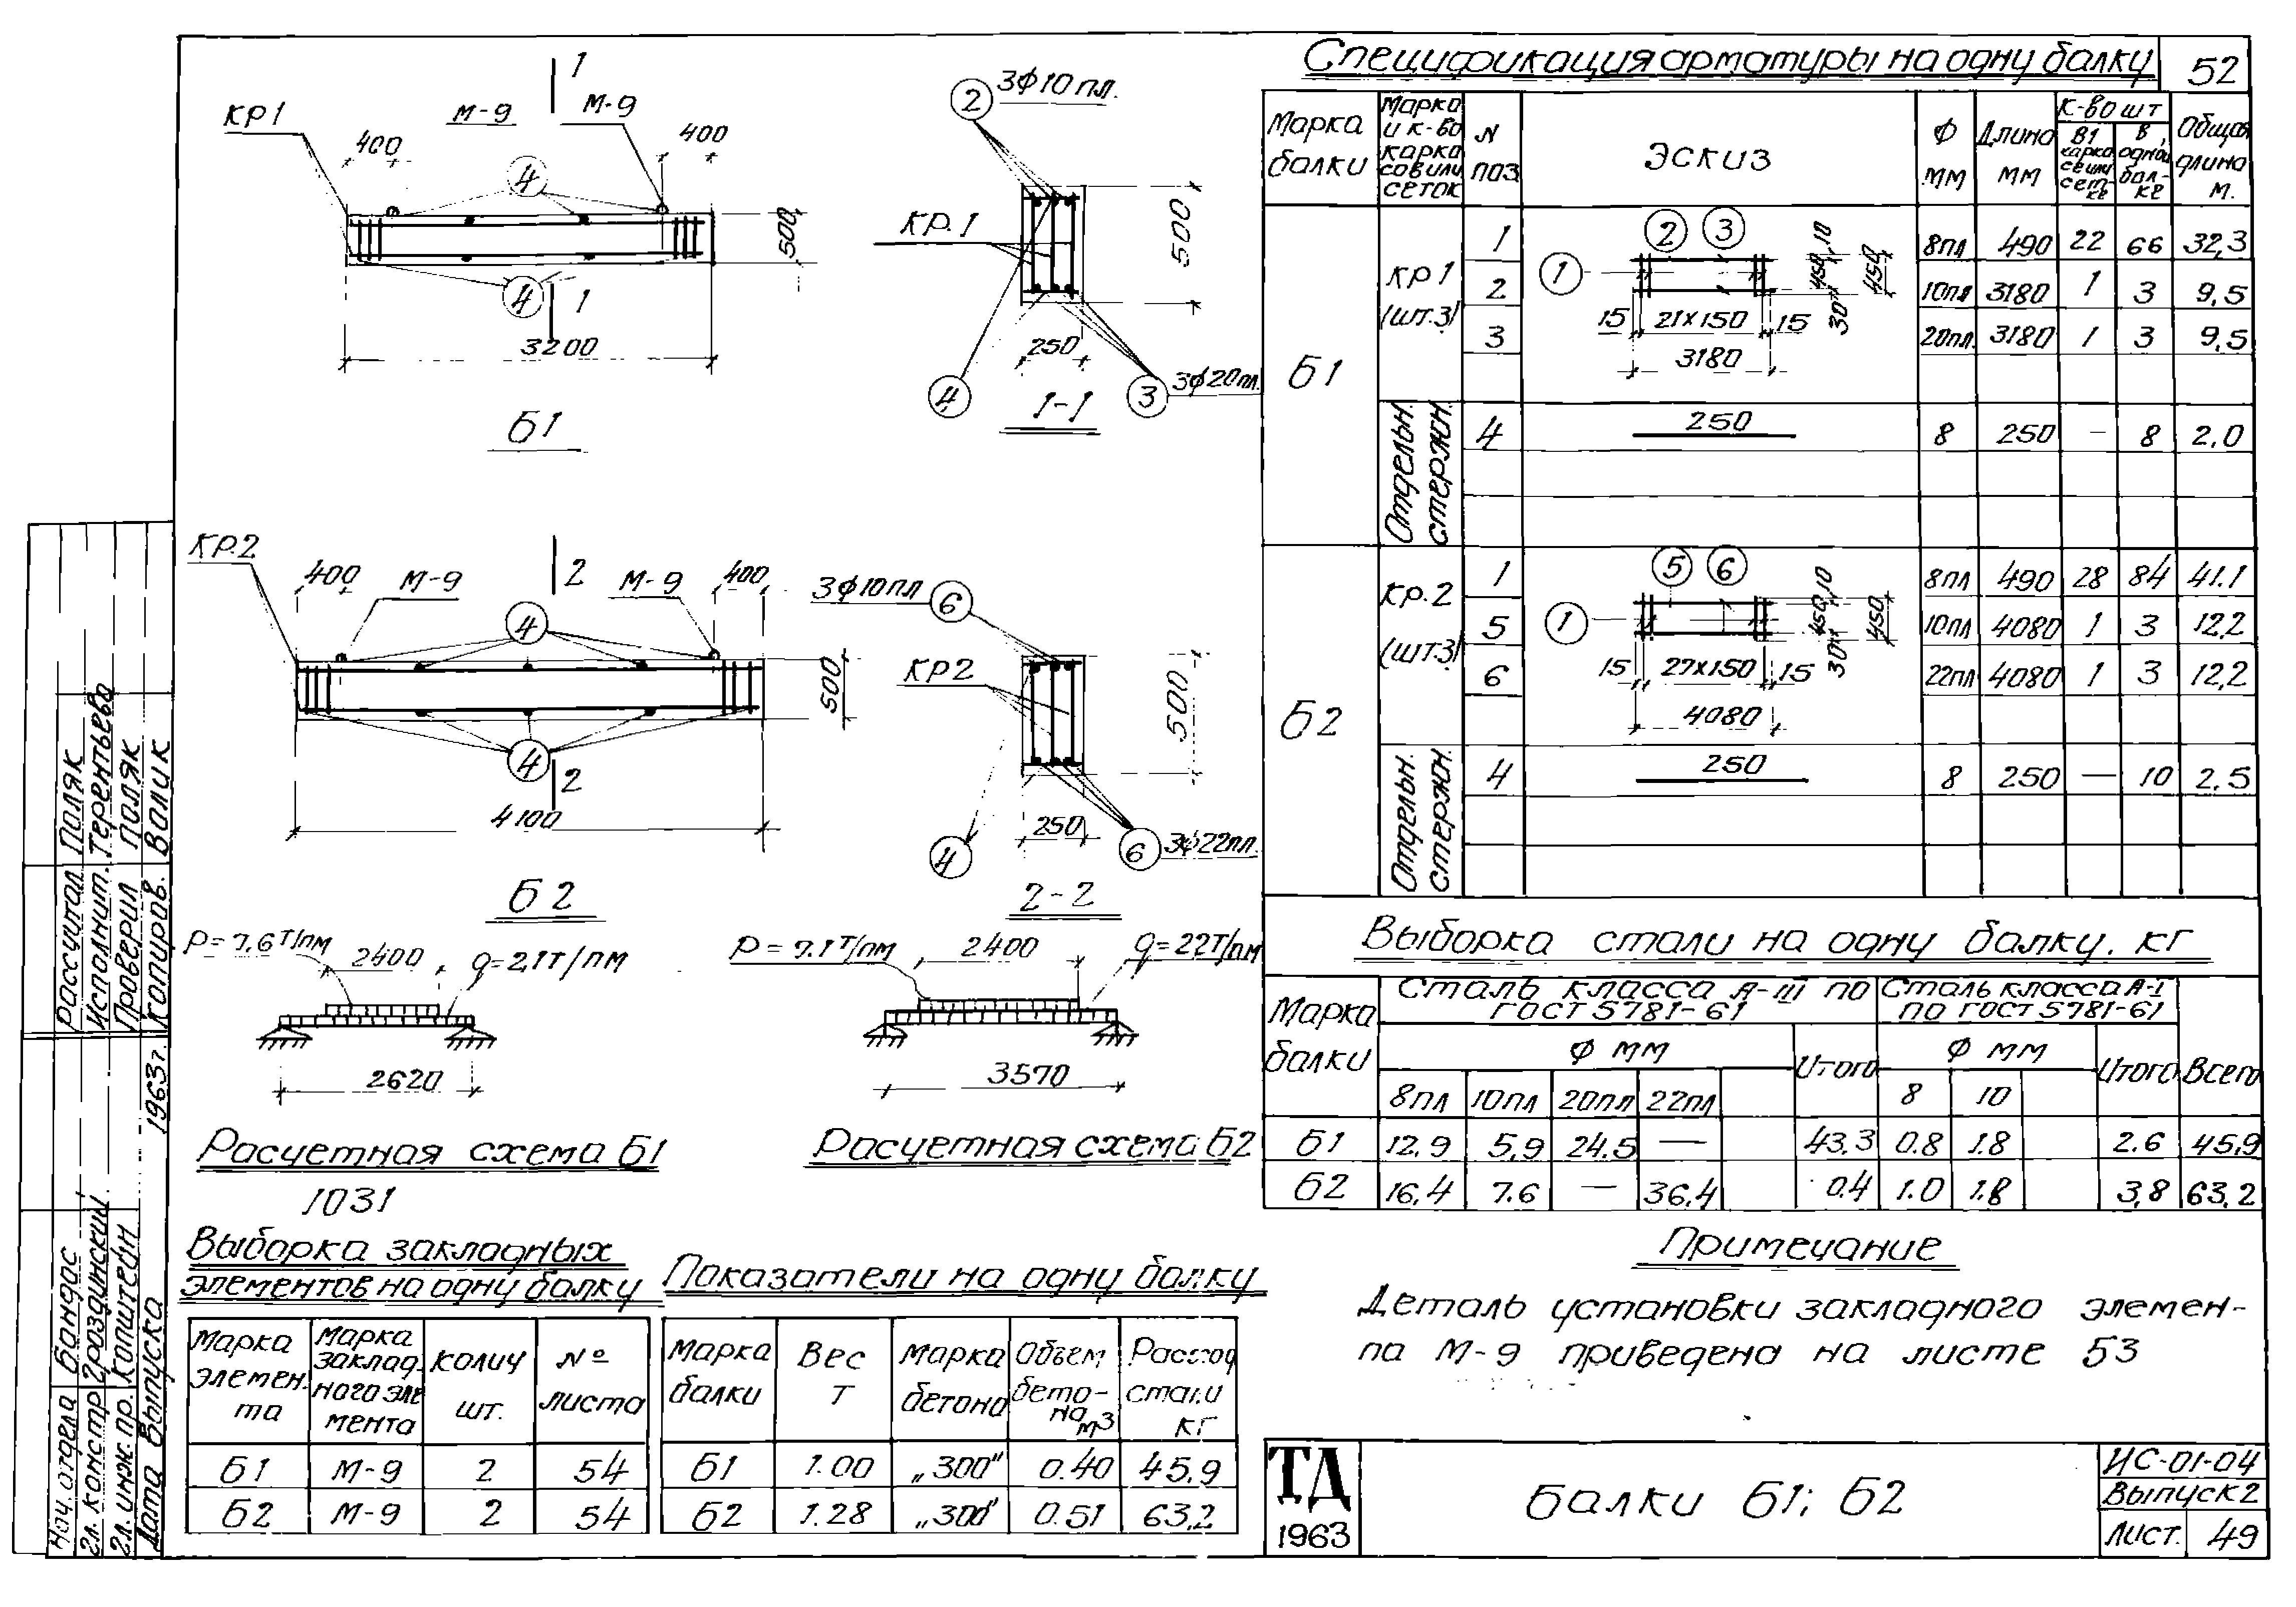 Спецификация арматуры на одну балку
52
1
КР1
М-9
М-9
400
400
4
500
4
1
3200
Б1
2
3ф10пл.
КР.1
500
250
4
3
3ф20пл.
1-1
КР.2
400
М-9
2
М-9
400
4
500
4
2
4100
Б2
3ф10пл
6
КР2
500
250
4
6
3ф22пл.
2-2
2400
q=2,1т/пм
2620
Расчетная схема Б1
1031
2400
3570
Расчетная схема Б2
Марка балки
Марка и к-во каркасов или сеток
N поз
Эскиз
Ф мм
Длина мм
К-во шт
В 1 каркасе или сетке
В одной балке
Общая длина м.
Б1
КР1 (шт.3)
1 8пл 490 22 66 32,3
2 10пл 3180 1 3 9,5
3 20пл. 3180 1 3 9,5
2 3
1
15 21х150 15
3180
450 10
30
450
Отдельн. стержн.
4 250 8 250 – 8 2,0
Б2
КР.2 (шт.3)
1 8пл 490 28 84 41.1
5 10пл 4080 1 3 12,2
6 22пл 4080 1 3 12,2
5 6
1
15 27х150 15
4080
450 10
30
450
Отдельн. стержн.
4 250 8 250 — 10 2,5
Выборка стали на одну балку. кг
Марка балки
Сталь класса А-III по ГОСТ 5781-61
Сталь класса А-I по ГОСТ 5781-61
Ф мм
Итого
Ф мм
Итого
Всего
8пл 10пл 20пл 22пл
8 10
Б1 12,9 5,9 24,5 — 43,3 0.8 1.8 2.6 45,9
Б2 16,4 7.6 — 36,4 0.4 1.0 1.8 3,8 63,2
Примечание
Деталь установки закладного элемен-
па М-9 приведена на листе 53
Выборка закладных
элементов на одну балку
Марка элемента
Марка закладного элемента
Колич шт.
№ листа
Б1 М-9 2 54
Б2 М-9 2 54
Показатели на одну балку
Марка балки
Вес Т
Марка бетона
Объем бетона м3
Расход стали кг
Б1 1.00 „300" 0.40 45,9
Б2 1.28 „300" 0.51 63,2
ТД
1963
Балки Б1; Б2
ИС-01-04
Выпуск 2
Лист. 49
Рассчитал Поляк
Исполнит. Терентьева
Проверил Поляк
Копиров. Валик
Нач. отдела Бондас
Гл. констр Гроздинский
Гл. инж. пр. Копштейн
Дата выпуска 1963г.